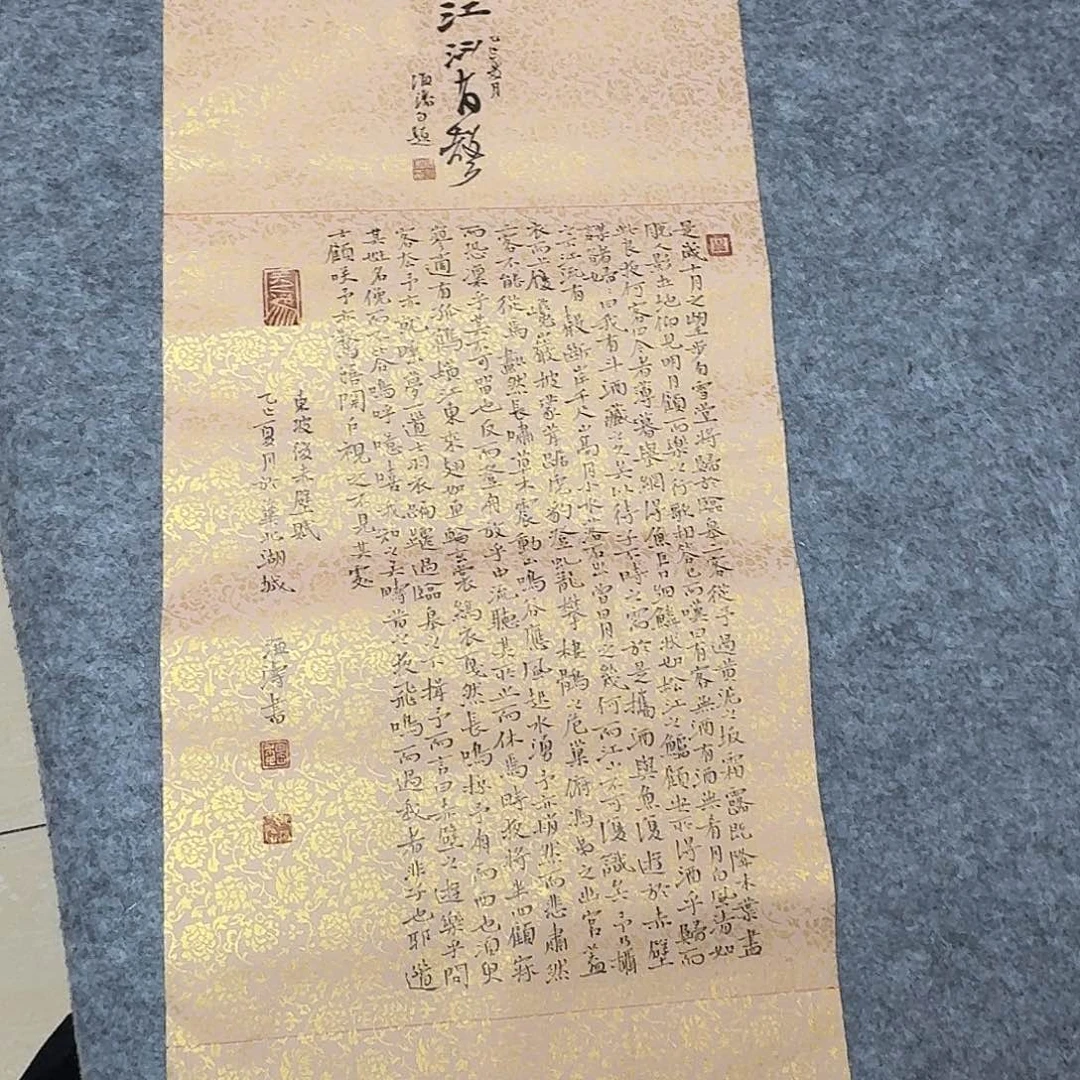 江流有聲
乙巳夏月
自題
是歲十月之望步自雪堂將歸於臨皋二客從予過黃泥之坂霜露既降木葉盡
脫人影在地仰見明月顧而樂之行歌相答已而嘆曰有客無酒有酒無肴月白風清如
此良夜何客曰今者薄暮舉網得魚巨口細鱗狀如松江之鱸顧安所得酒乎歸而
謀諸婦婦曰我有斗酒藏之久矣以待子不時之需於是攜酒與魚復遊於赤壁
之下江流有聲斷岸千尺山高月小水落石出曾日月之幾何而江山不可復識矣予乃攝
衣而上履巉巖披蒙茸踞虎豹登虬龍攀棲鶻之危巢俯馮夷之幽宮蓋
二客不能從焉劃然長嘯草木震動山鳴谷應風起水湧予亦悄然而悲肅然
而恐凜乎其不可留也反而登舟放乎中流聽其所止而休焉時夜將半四顧寂
寥適有孤鶴橫江東來翅如車輪玄裳縞衣戛然長鳴掠予舟而西也須臾
客去予亦就睡夢一道士羽衣蹁躚過臨皋之下揖予而言曰赤壁之遊樂乎問
其姓名俛而不答嗚呼噫嘻我知之矣疇昔之夜飛鳴而過我者非子也耶道
士顧笑予亦驚悟開戶視之不見其處
東坡後赤壁賦
乙巳夏月於北湖城 濤書